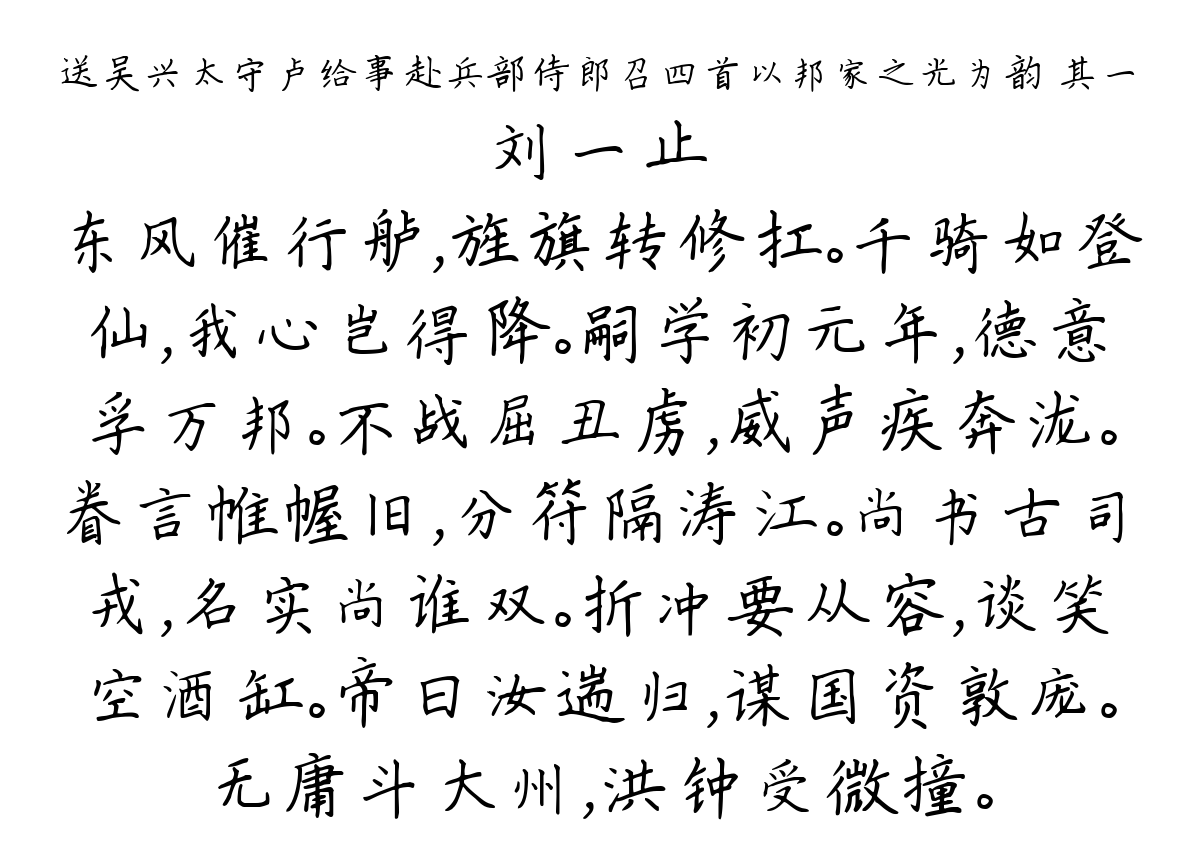 送吴兴太守卢给事赴兵部侍郎召四首以邦家之光为韵 其一
刘一止
东风催行舻,旌旗转修扛。千骑如登
仙,我心岂得降。嗣学初元年,德意
孚万邦。不战屈丑虏,威声疾奔泷。
眷言帷幄旧,分符隔涛江。尚书古司
戎,名实尚谁双。折冲要从容,谈笑
空酒缸。帝曰汝遄归,谋国资敦庞。
无庸斗大州,洪钟受微撞。